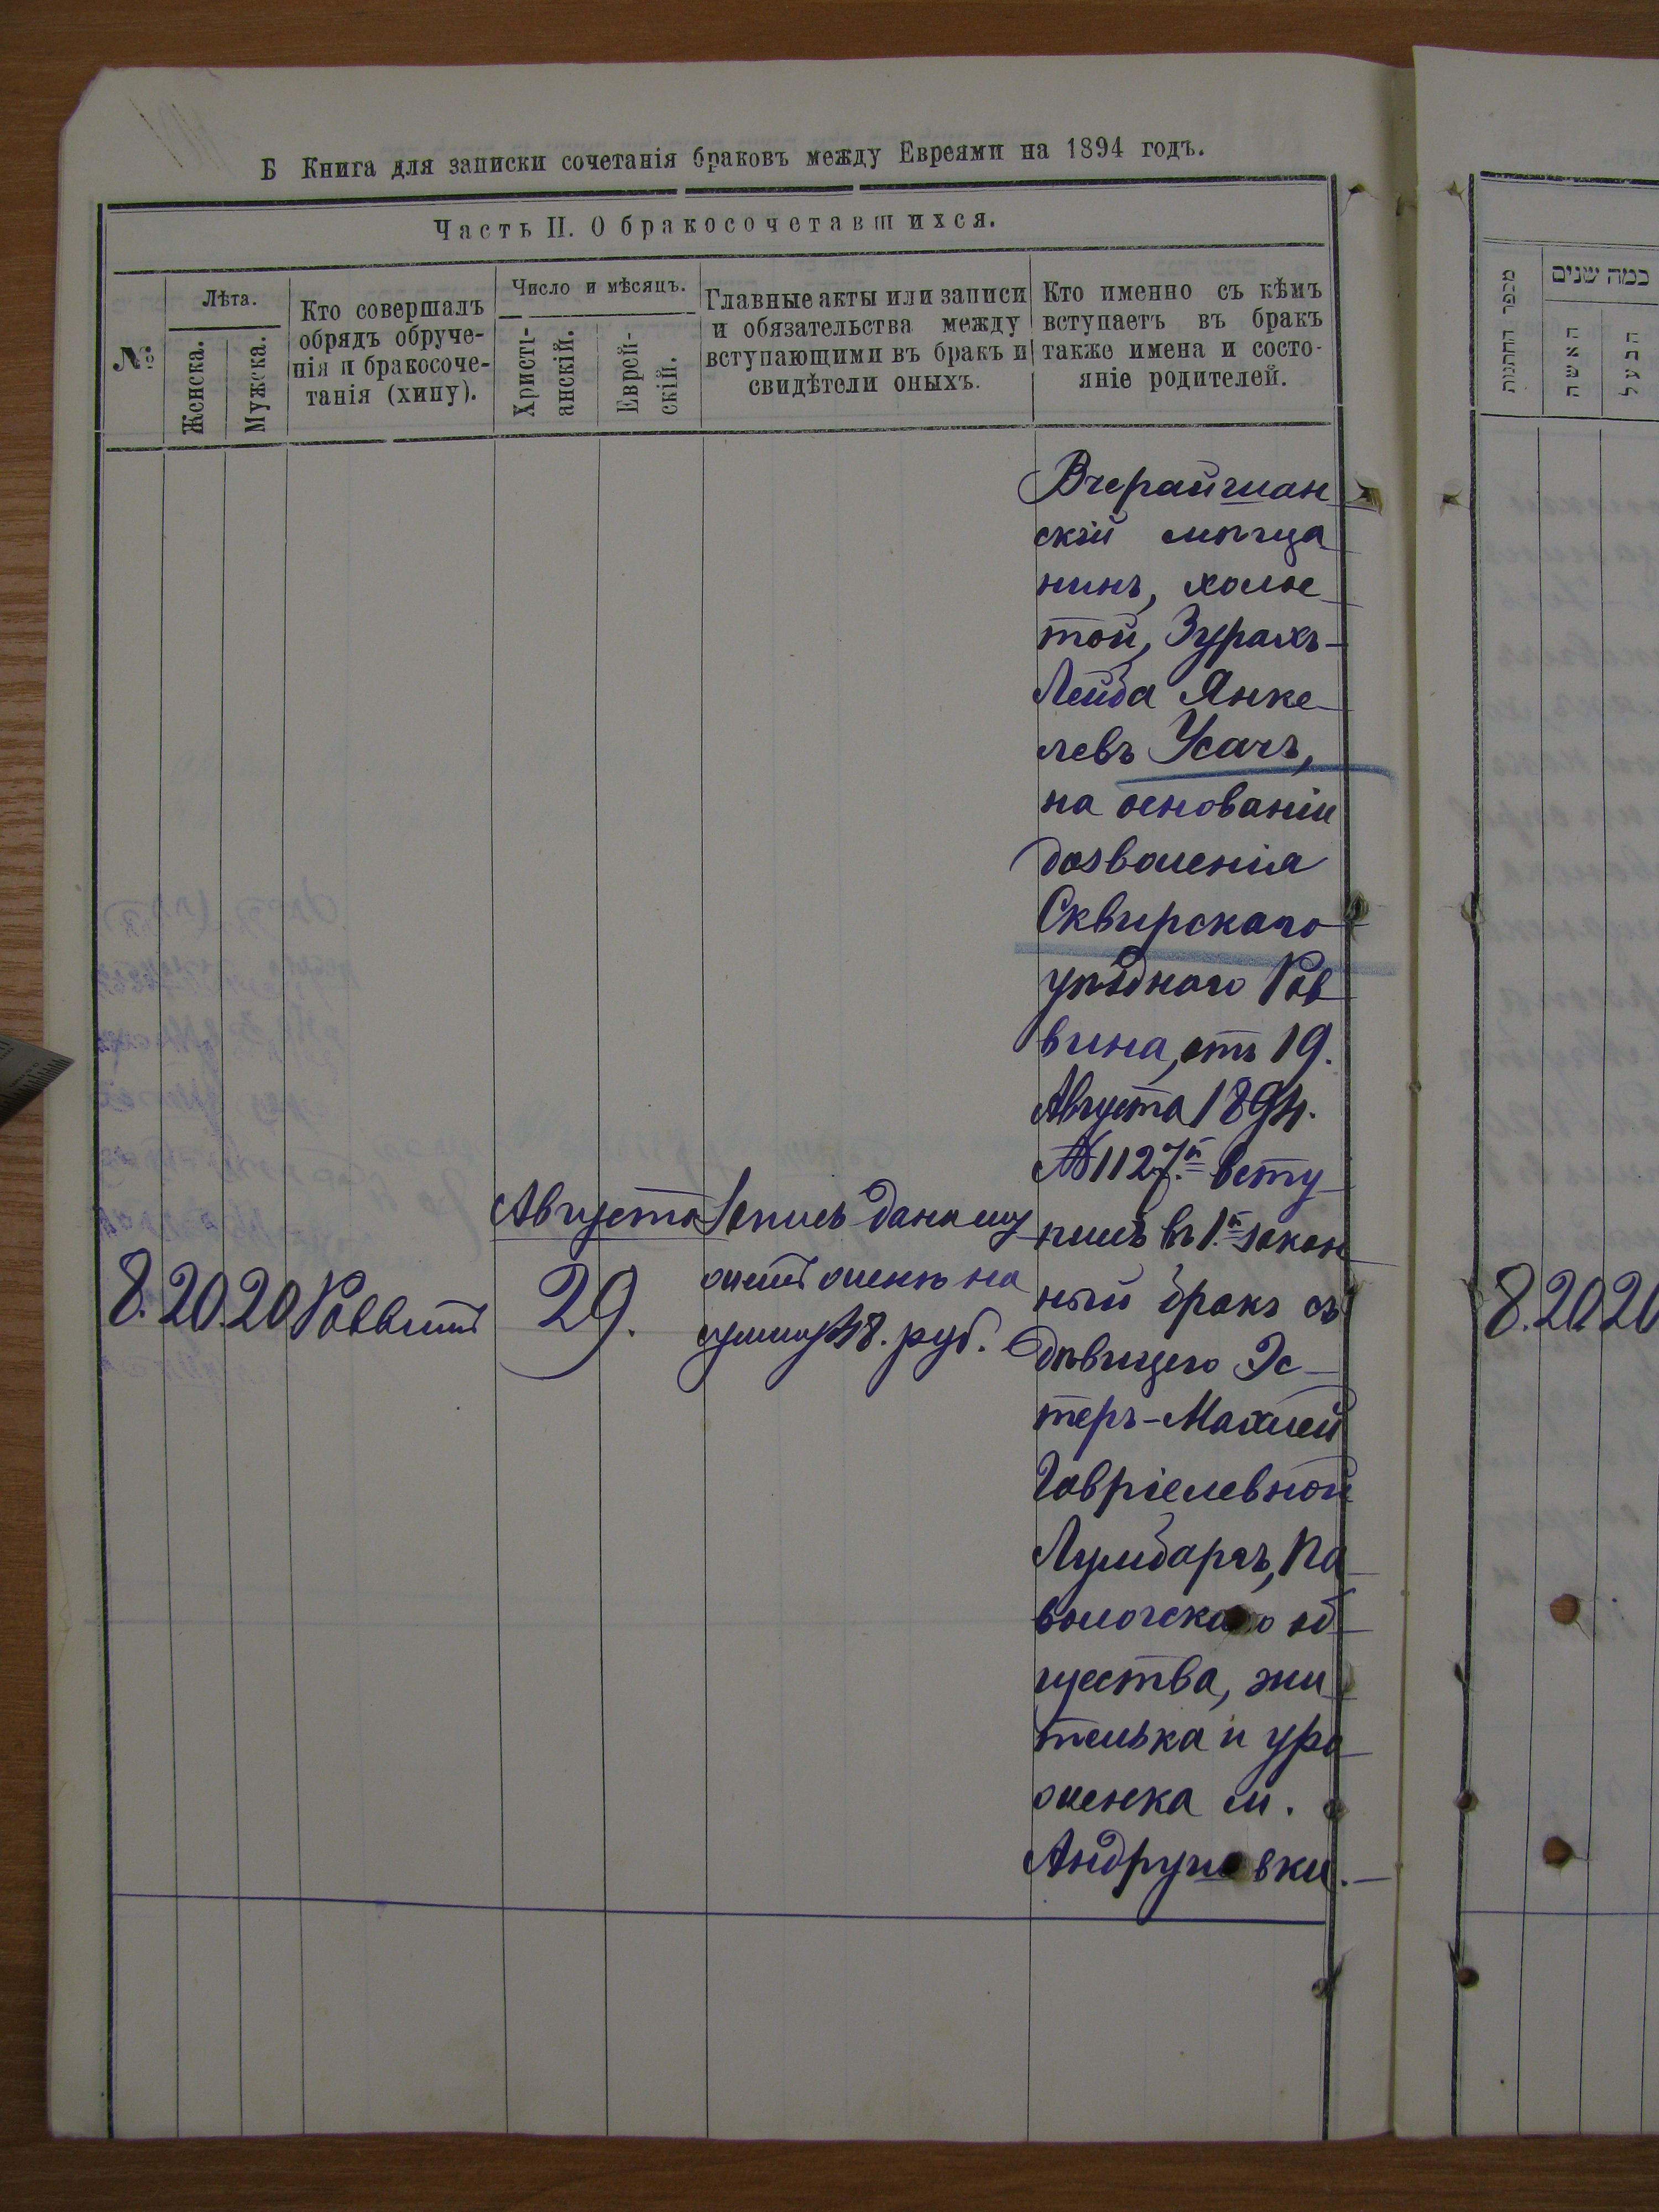 Б Книга для записки сочетанія браковъ между Евреями на 1894 годъ.
Часть II. О бракосочетавшихся.
№
Лѣта.
Женска.
Мужска.
Кто совершалъ
обрядъ обруче-
нія и бракосоче-
танія (хипу).
Число и мѣсяцъ.
Христі-
анскій.
Еврей-
скій.
Главные акты или записи
и обязательства между
вступающими въ бракъ и
свидѣтели оныхъ.
Кто именно съ кѣмъ
вступаетъ въ бракъ
также имена и состо-
яніе родителей.
8. 20. 20 Раввинъ
Августа
29.
Запись дана му
жемъ женѣ на
сумму 48. руб.
Вчерайшан
скій мѣща
нинъ, холос
той, Зурахъ-
Лейба Янке
левъ Усачъ,
на основаніи
дозволенія
Сквирскаго
уѣзднаго Рав
вина, отъ 19.
Августа 1894.
№ 1127.й всту
пилъ въ 1.й закон
ный бракъ съ
дѣвицею Эс
теръ-Махлей
Гавріелевной
Лумбаргъ, Па
волочскаго об
щества, жи
телька и уро
женка м.
Андрушовки.
מספר החתונות
כמה שנים
האשה
הבעל
8. 20 20